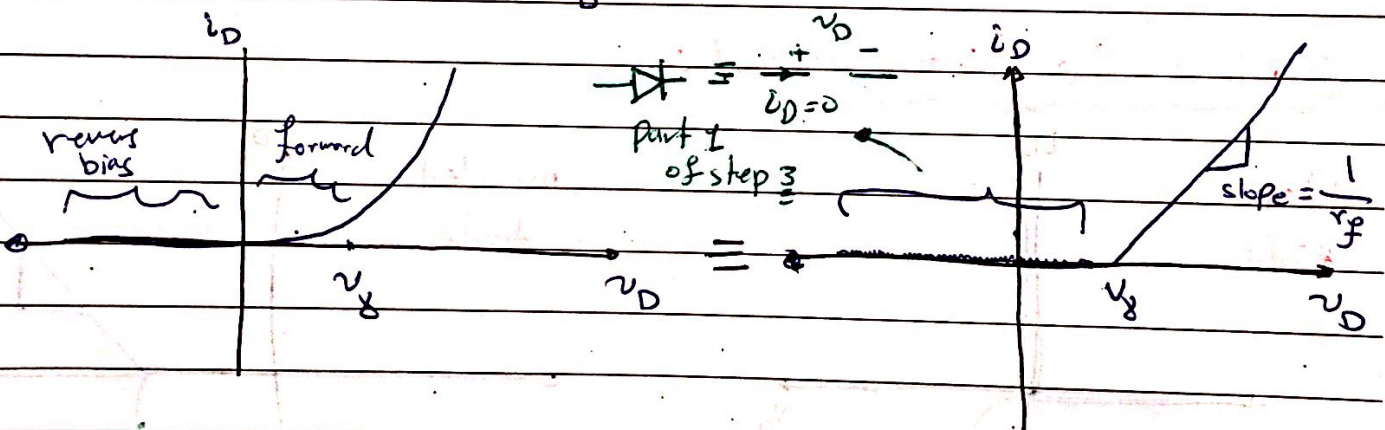 i_D
revers
bias
forward
v_γ
v_D
≡
≡
+ v_D −
i_D=0
Part 1
of step 3
i_D
slope = 1/r_f
v_γ
v_D